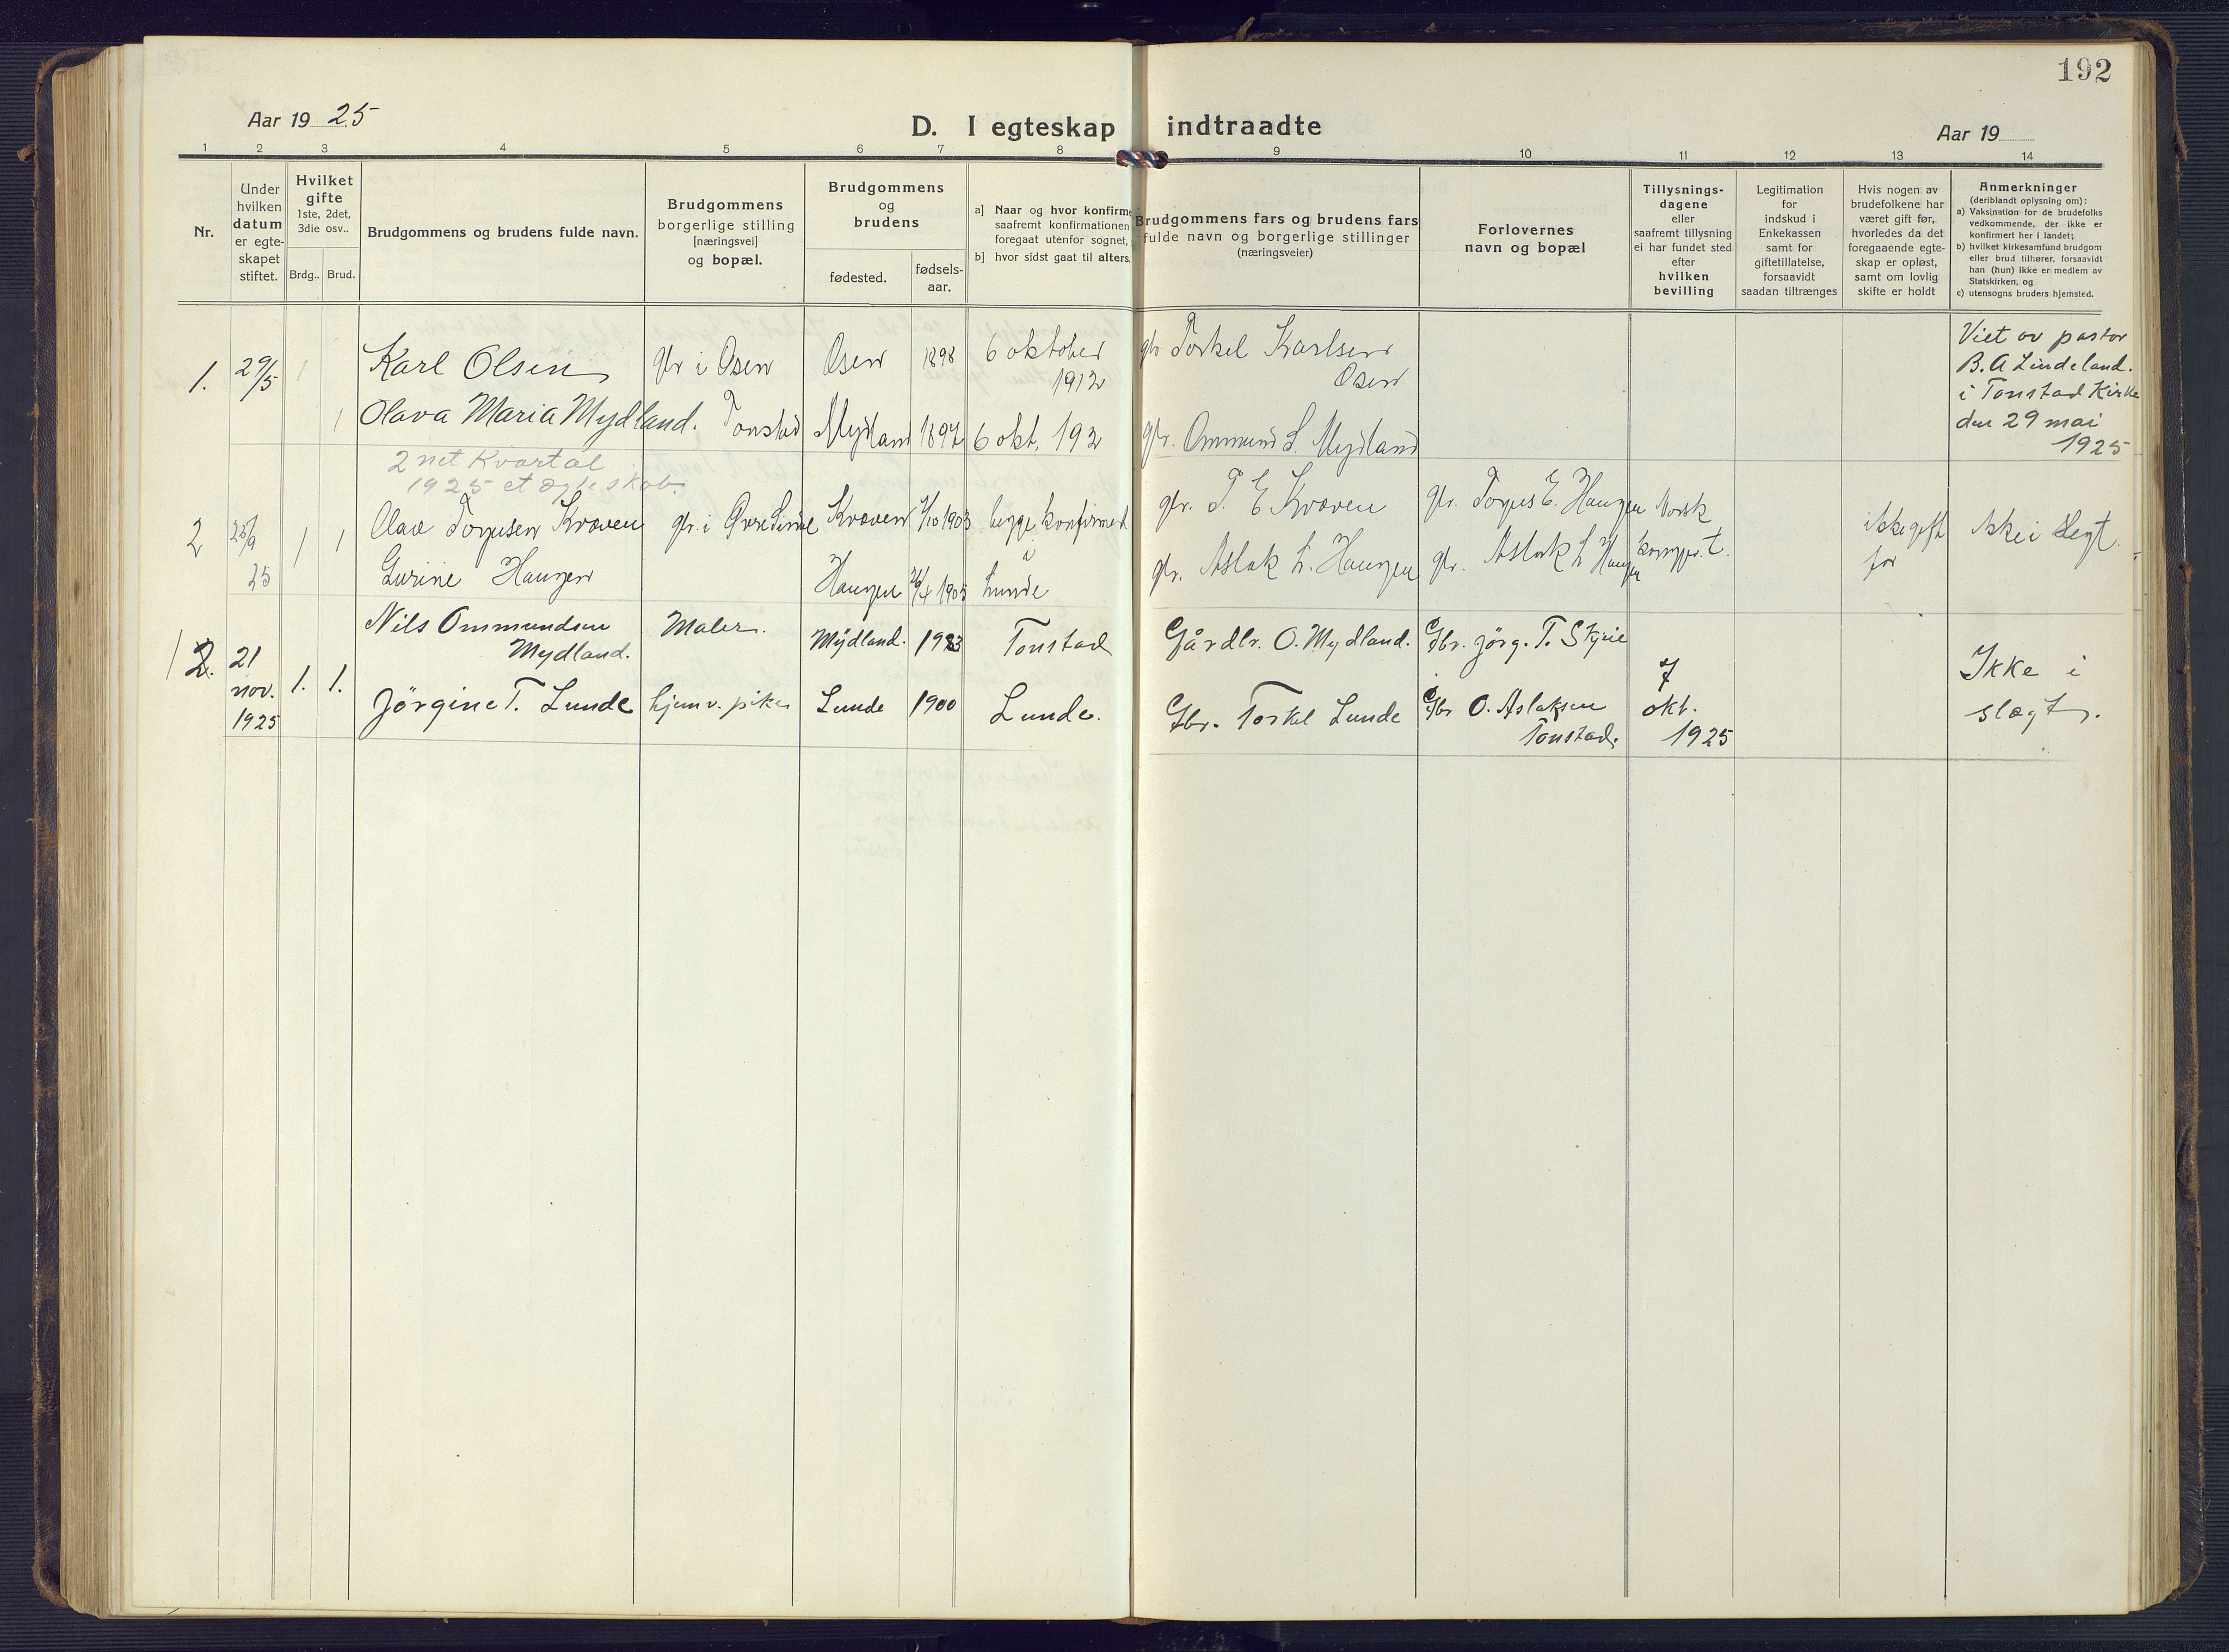 192
Aar 1925
D. I egteskap indtraadte
Aar 19
1 2 3 4 5 6 7 8 9 10 11 12 13 14
Nr.
Under
hvilken
datum
er egte-
skapet
stiftet.
Hvilket
gifte
1ste, 2det,
3die osv..
Brdg.. Brud.
Brudgommens og brudens fulde navn.
Brudgommens
borgerlige stilling
[næringsvei]
og bopæl.
Brudgommens
og
brudens
fødested.
fødsels-
aar.
a] Naar og hvor konfirme
saafremt konfirmationen
foregaat utenfor sognet,
b] hvor sidst gaat til alters.
Brudgommens fars og brudens fars
fulde navn og borgerlige stillinger
(næringsveier)
Forlovernes
navn og bopæl
Tillysnings-
dagene
eller
saafremt tillysning
ei har fundet sted
efter
hvilken
bevilling
Legitimation
for
indskud i
Enkekassen
samt for
giftetillatelse,
forsaavidt
saadan tiltrænges
Hvis nogen av
brudefolkene har
været gift før,
hvorledes da det
foregaaende egte-
skap er opløst,
samt om lovlig
skifte er holdt
Anmerkninger
(deriblandt oplysning om):
a) Vaksination for de brudefolks
vedkommende, der ikke er
konfirmert her i landet;
b) hvilket kirkesamfund brudgom
eller brud tilhører, forsaavidt
han (hun) ikke er medlem av
Statskirken, og
c) utensogns bruders hjemsted.
1. 29/5 1 Karl Olsen gbr i Osen Osen 1898 6 oktober 1912 gbr Torkel Karlsen Osen
1 Olava Maria Mydland. Tonstad Mydland 1897 6 okt. 192 gbr. Ommund S. Mydland
Viet av pastor
B. A Lindeland.
i Tonstad Kirke
den 29 mai
1925
2net Kvartal
1925 et ægteskab.
2 25/9 25 1 1 Olav Torjusen Kvæven gbr. i Øvre Sirdal Kvæven 1/10 1903 begge konfirmert gbr. T. E Kvæven gbr. Torjus E. Haugen Norsk
Gurine Haugen Haugen 26/4 1905 i Lunde gbr. Aslak L. Haugen gbr. Aslak L Haugen
ikke gift
før
Ikke i slegt.
2. 21
nov.
1925
1. 1.
Nils Ommundsen
Mydland.
Maler. Mydland. 1903 Tonstad Gårdbr. O. Mydland. Gbr. Jørg. T. Skjeie
Jörgine T. Lunde hjemv. pike Lunde 1900 Lunde. Gbr. Torkel Lunde Gbr O. Aslaksen
Tonstad.
7
okt.
1925
Ikke i
slægt.